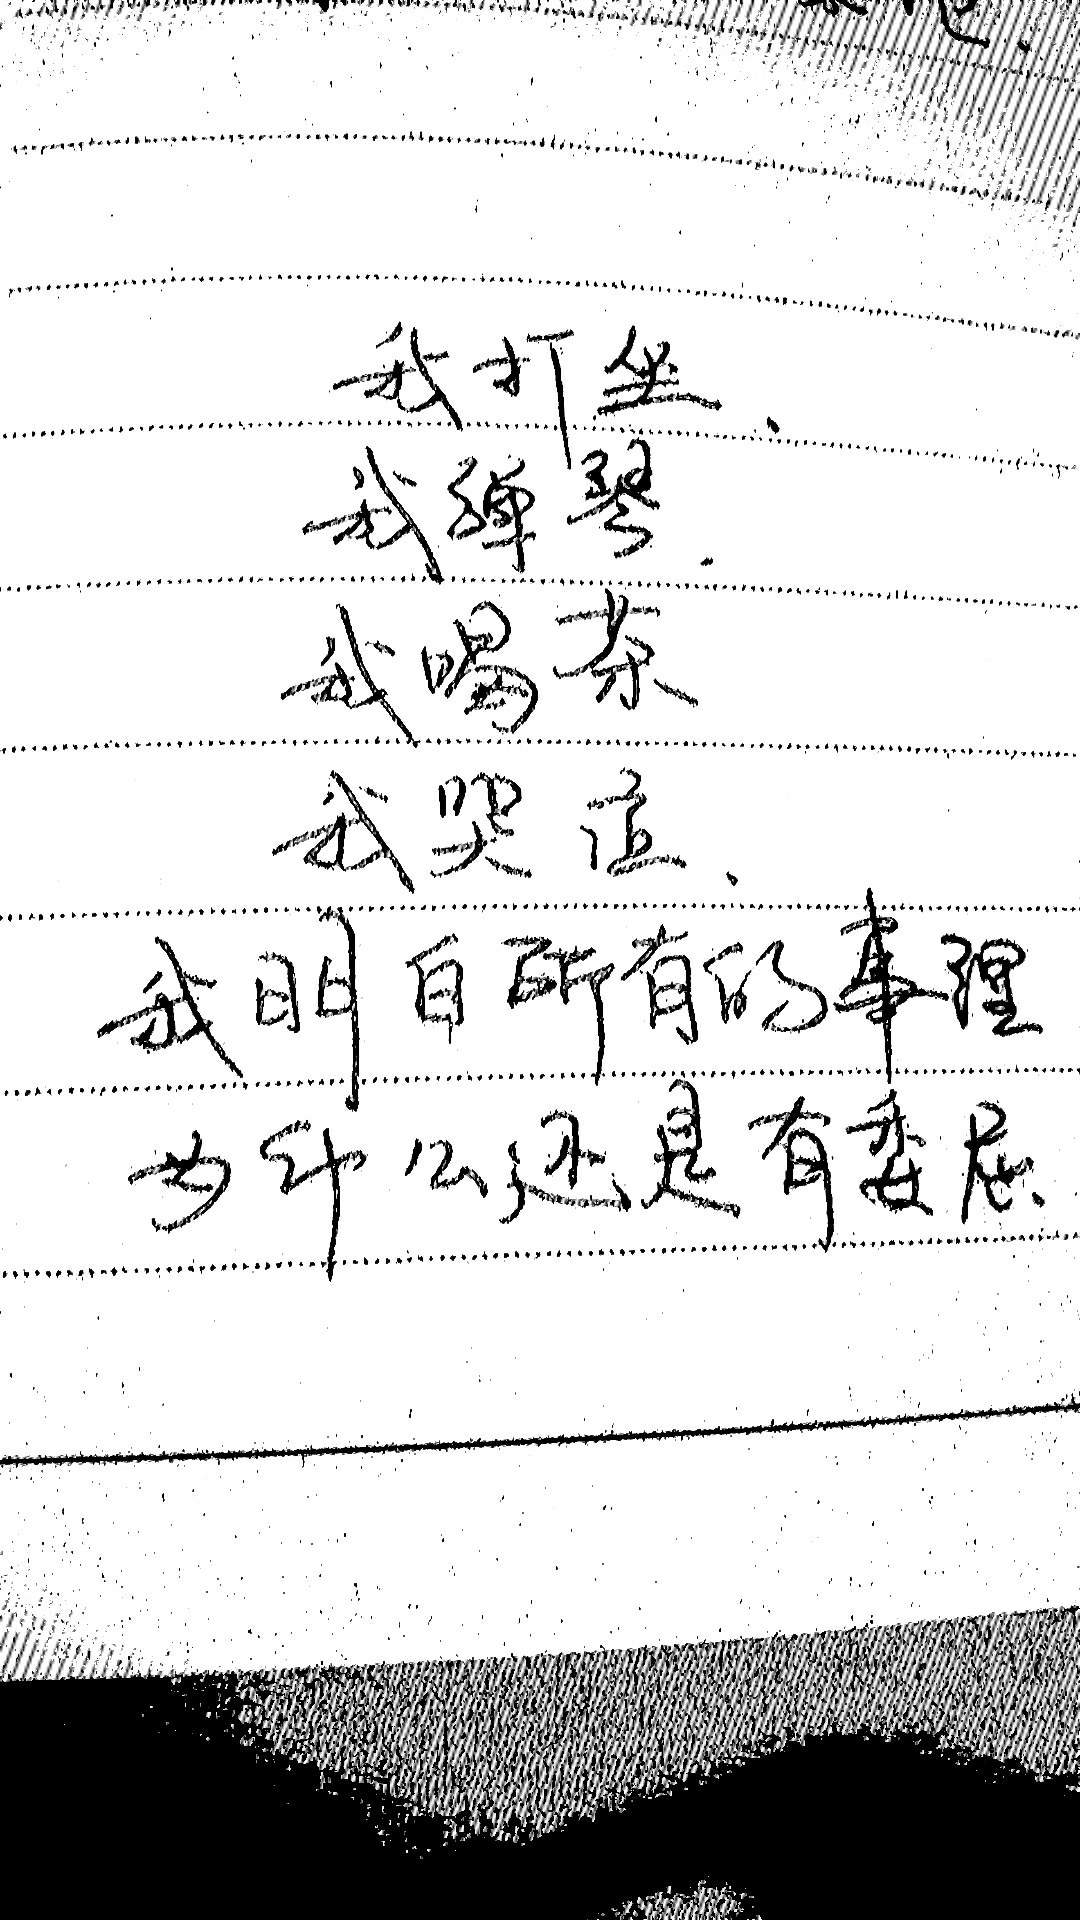 我打坐、
我彈琴.
我喝茶
我哭泣、
我明白所有的事理
为什么还是有委屈、